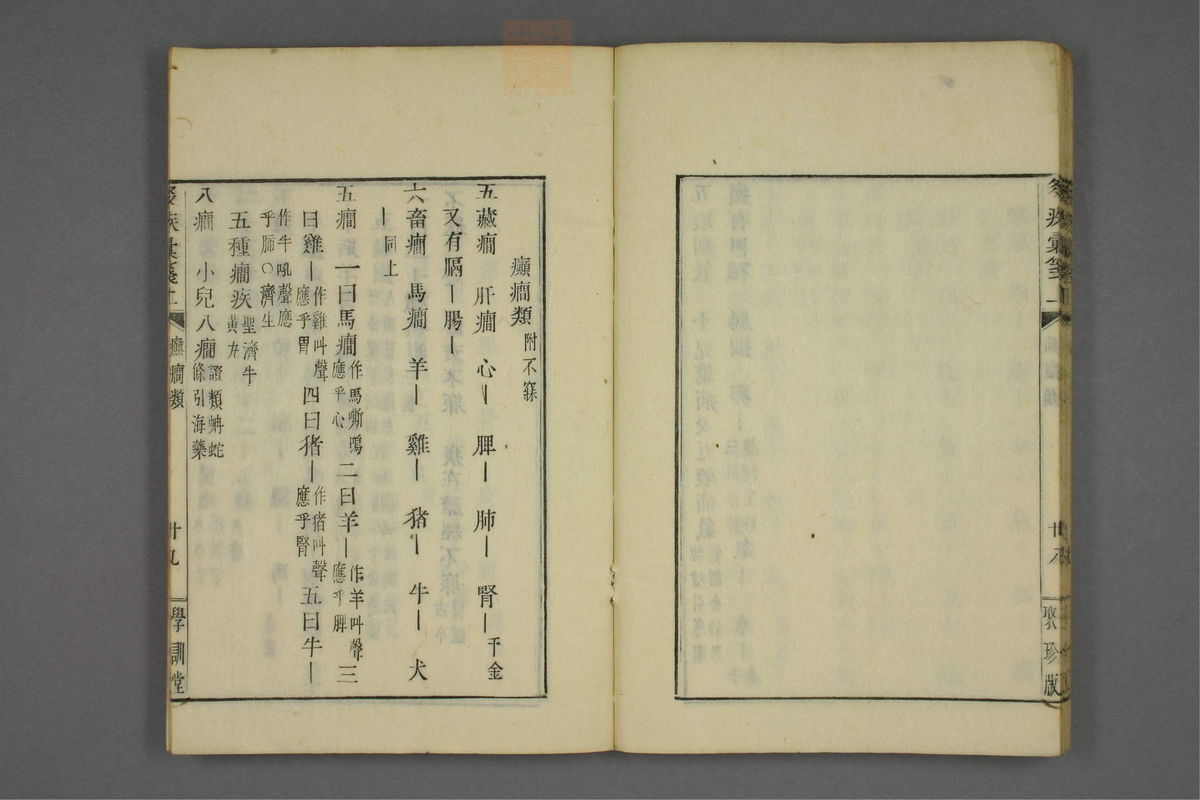 聚珍版
癲癇類附不寐
五藏癇 肝癇 心〡 脾〡 肺〡 腎〡千金
又有膈〡腸〡
六畜癇 馬癇 羊〡 雞〡 猪〡 牛〡 犬
〡同上
五癇 一曰馬癇作馬嘶鳴應乎心二曰羊〡作羊叫聲應乎脾三
曰雞〡作雞叫聲應乎胃四曰猪〡作猪叫聲應乎腎五曰牛〡
作牛吼聲應乎肺〇濟生
五種癇疾聖濟牛黃丸
八癇 小兒八癇證類蚺蛇條引海藥
癲癇類 廿九 學訓堂